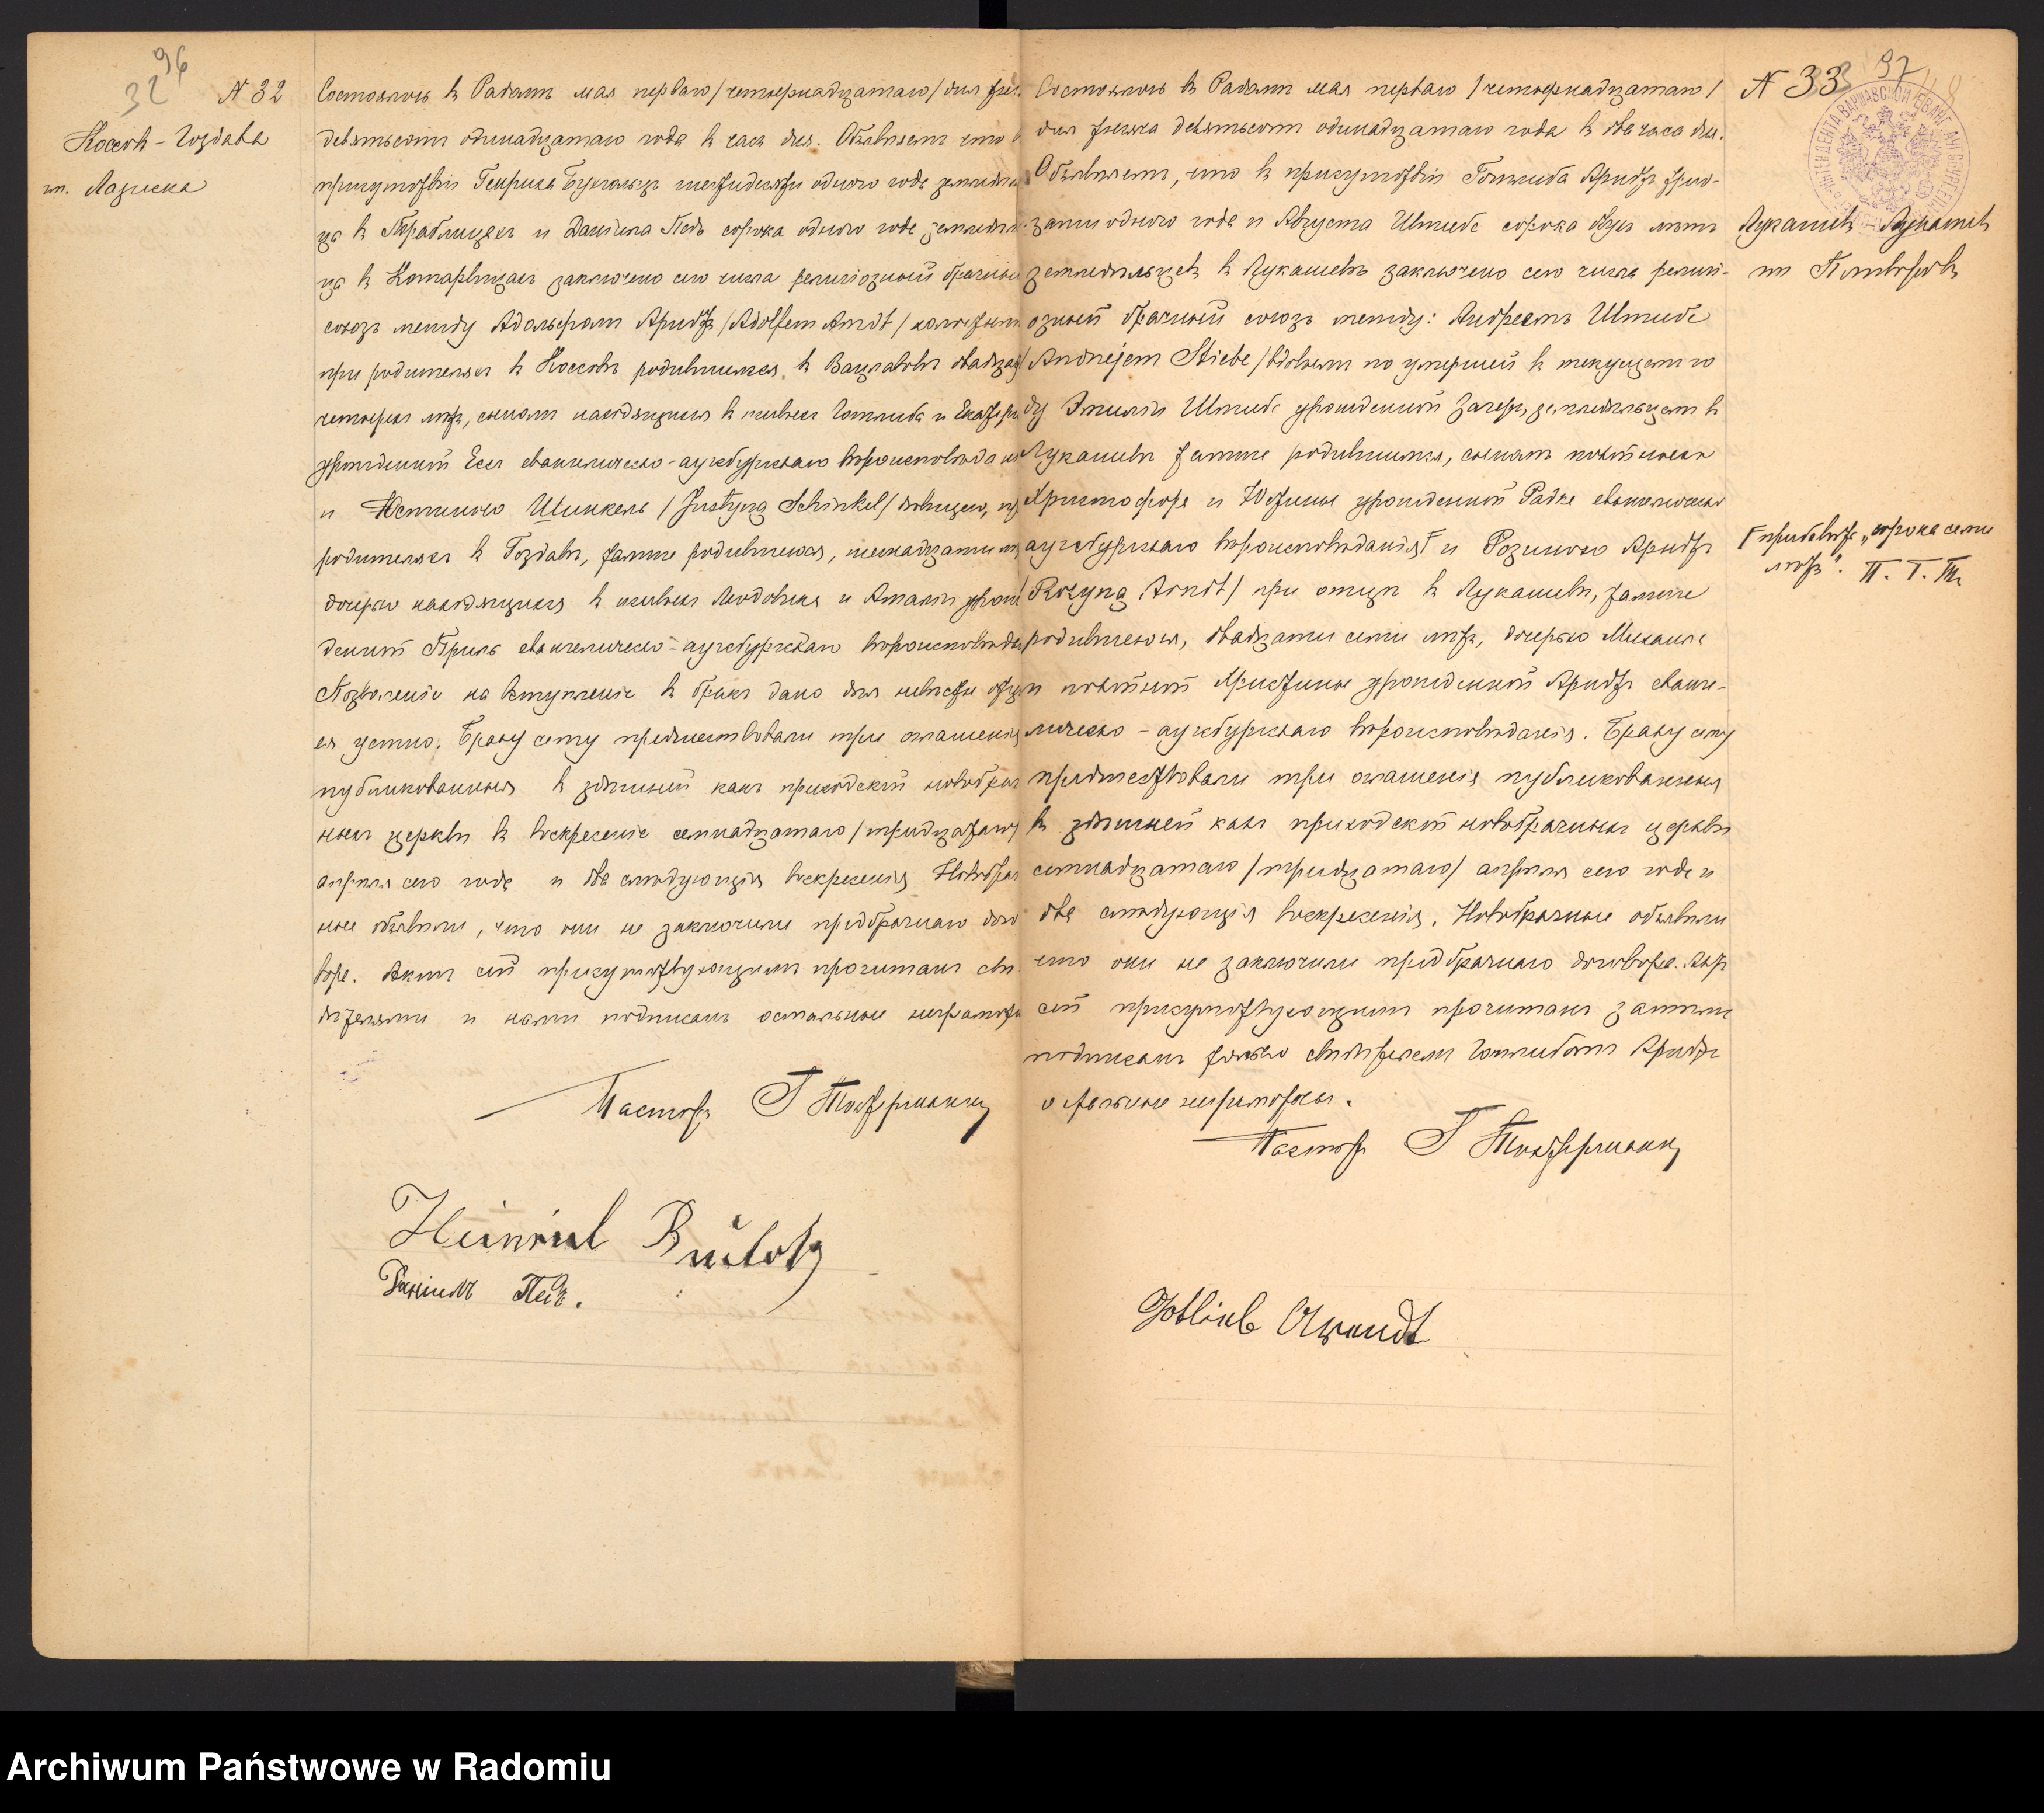 96
32
N 32
Коссовъ - Гоздава
гм. Лазиска
Состоялось въ Радомѣ мая перваго /четырнадцатаго/ дня тыс.
девятьсотъ одинадцатаго года въ часъ дня. Объявляемъ что въ
присутствіи Генриха шестидесяти одного года земледѣль
ца въ и Даніила Педъ сорока одного года земледѣль
ца въ заключено сего числа религіозный брачный
союзъ между Адольфомъ Арндтъ /Adolfem Arndt/ холостымъ
при родителяхъ въ Коссовѣ родившимся въ Вацлавовѣ двадцати
четырехъ лѣтъ, сыномъ находящихся въ живыхъ Готлиба и Екатери
урожденной евангелическо-аугсбургскаго вѣроисповѣданія
и Юстиною Шинкель /Justyną Schinkel/ дѣвицею, при
родителяхъ въ Гоздавѣ, тамже родившеюся, шестнадцати лѣтъ
дочерью находящихся въ живыхъ Людовика и Амаліи урож
денной Приль евангелическо-аугсбургскаго вѣроисповѣда
Позволеніе на вступленіе въ бракъ дано для невѣсты отцемъ
ея устно. Браку сему предшествовали три оглашенія
публикованныя въ здѣшней какъ приходской новобрач
ныхъ церкви въ воскресеніе семнадцатаго /тридцатаго/
апрѣля сего года и два слѣдующія воскресенія Новобрач
ные объявили, что они не заключили предбрачнаго дого
вора. Актъ сей присутствующимъ прочитанъ сви
дѣтелями и нами подписанъ остальные неграмотны
Пасторъ Г Тохтерманъ
Heinrich
Даніилъ Пед.
N 33
97
Лукашовъ - Лукашовъ
гм
Состоялось въ Радомѣ мая перваго /четырнадцатаго/
дня тысяча девятьсотъ одинадцатаго года въ два часа дня.
Объявляемъ, что въ присутствіи Готлиба Арндтъ трид-
зати одного года и Августа Штибе сорока двухъ лѣтъ
земледѣльцевъ въ Лукашевѣ заключено сего числа религі-
озный брачный союзъ между: Андреемъ Штибе
Andrzejem Stiebe /вдовцемъ по умершей въ текущемъ го
ду Эмиліи Штибе урожденной Загеръ, земледѣльцемъ въ
Лукашевѣ тамже родившимся, сыномъ покойныхъ
Христофора и Юстины урожденной Радке евангелическо
аугсбургскаго вѣроисповѣданія Г и Розиною Арндтъ
Rozyną Arndt/ при отцѣ въ Лукашевѣ, тамже
родившеюся, двадцати семи лѣтъ, дочерью Михаила
и покойной Христины урожденной Арндтъ еванге-
лическо-аугсбургскаго вѣроисповѣданія. Браку сему
предшествовали три оглашенія публикованныя
въ здѣшней какъ приходской новобрачныхъ церкви
семнадцатаго /тридцатаго/ апрѣля сего года и
два слѣдующія воскресенія. Новобрачные объявили
что они не заключили предбрачнаго договора. Актъ
сей присутствующимъ прочитанъ затѣмъ
подписанъ только свидѣтелемъ Готлибомъ Арндтъ
остальные неграмотны.
Г прибавить „сорока семи
лѣтъ". П. Г. Т.
Пасторъ Г Тохтерманъ
Gottlieb Arendt
Archiwum Państwowe w Radomiu